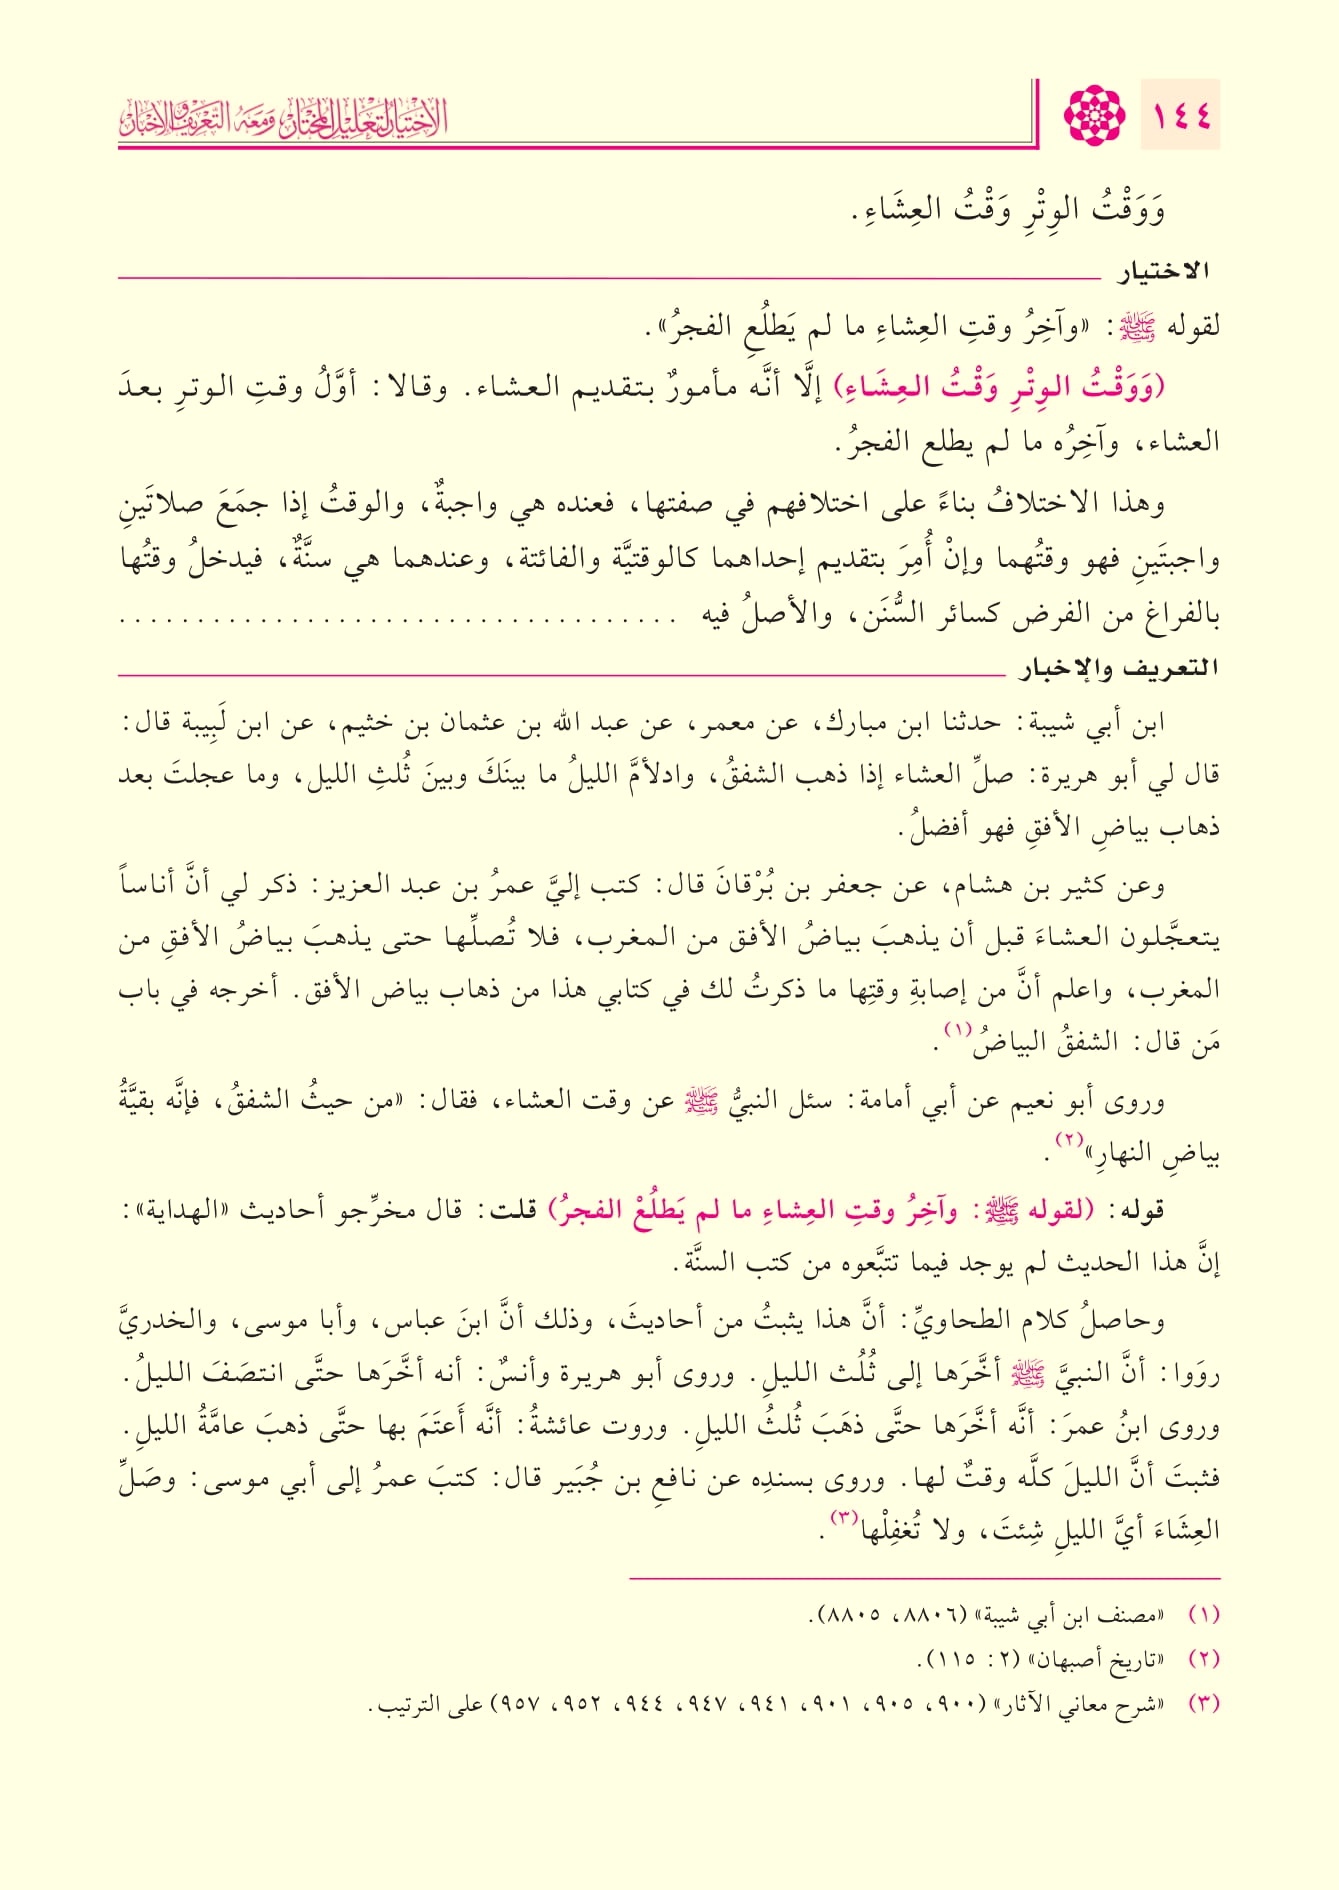 ١٤٤
الاختيار لتعليل المختار ومعه التعريف والإخبار
وَوَقْتُ الوِتْرِ وَقْتُ العِشَاءِ.
الاختيار
لقوله ﷺ: «وآخِرُ وقتِ العِشاءِ ما لم يَطلُعِ الفجرُ».
(وَوَقْتُ الوِتْرِ وَقْتُ العِشَاءِ) إلَّا أنَّه مأمورٌ بتقديم العشاء. وقالا: أوَّلُ وقتِ الوترِ بعدَ
العشاء، وآخِرُه ما لم يطلع الفجرُ.
وهذا الاختلافُ بناءً على اختلافهم في صفتها، فعنده هي واجبةٌ، والوقتُ إذا جمَعَ صلاتَينِ
واجبتَينِ فهو وقتُهما وإنْ أُمِرَ بتقديم إحداهما كالوقتيَّة والفائتة، وعندهما هي سنَّةٌ، فيدخلُ وقتُها
بالفراغ من الفرض كسائر السُّنَن، والأصلُ فيه . . . . . . . . . . . . . . . . . . . . . . . . . . . . . . . . . . . . .
التعريف والإخبار
ابن أبي شيبة: حدثنا ابن مبارك، عن معمر، عن عبد الله بن عثمان بن خثيم، عن ابن لَبِيبة قال:
قال لي أبو هريرة: صلِّ العشاء إذا ذهب الشفقُ، وادلأمَّ الليلُ ما بينَكَ وبينَ ثُلثِ الليل، وما عجلتَ بعد
ذهاب بياضِ الأفقِ فهو أفضلُ.
وعن كثير بن هشام، عن جعفر بن بُرْقانَ قال: كتب إليَّ عمرُ بن عبد العزيز: ذكر لي أنَّ أناساً
يتعجَّلون العشاءَ قبل أن يذهبَ بياضُ الأفق من المغرب، فلا تُصلِّها حتى يذهبَ بياضُ الأفقِ من
المغرب، واعلم أنَّ من إصابةِ وقتِها ما ذكرتُ لك في كتابي هذا من ذهاب بياض الأفق. أخرجه في باب
مَن قال: الشفقُ البياضُ(١).
وروى أبو نعيم عن أبي أمامة: سئل النبيُّ ﷺ عن وقت العشاء، فقال: «من حيثُ الشفقُ، فإنَّه بقيَّةُ
بياضِ النهارِ»(٢).
قوله: (لقوله ﷺ: وآخِرُ وقتِ العِشاءِ ما لم يَطلُعْ الفجرُ) قلت: قال مخرِّجو أحاديث «الهداية»:
إنَّ هذا الحديث لم يوجد فيما تتبَّعوه من كتب السنَّة.
وحاصلُ كلام الطحاويِّ: أنَّ هذا يثبتُ من أحاديثَ، وذلك أنَّ ابنَ عباس، وأبا موسى، والخدريَّ
روَوا: أنَّ النبيَّ ﷺ أخَّرَها إلى ثُلُث الليلِ. وروى أبو هريرة وأنسٌ: أنه أخَّرَها حتَّى انتصَفَ الليلُ.
وروى ابنُ عمرَ: أنَّه أخَّرَها حتَّى ذهَبَ ثُلثُ الليلِ. وروت عائشةُ: أنَّه أَعتَمَ بها حتَّى ذهبَ عامَّةُ الليلِ.
فثبتَ أنَّ الليلَ كلَّه وقتٌ لها. وروى بسندِه عن نافعِ بن جُبَير قال: كتبَ عمرُ إلى أبي موسى: وصَلِّ
العِشَاءَ أيَّ الليلِ شِئتَ، ولا تُغفِلْها(٣).
(١) «مصنف ابن أبي شيبة» (٨٨٠٦، ٨٨٠٥).
(٢) «تاريخ أصبهان» (٢: ١١٥).
(٣) «شرح معاني الآثار» (٩٠٠، ٩٠٥، ٩٠١، ٩٤١، ٩٤٧، ٩٤٤، ٩٥٢، ٩٥٧) على الترتيب.